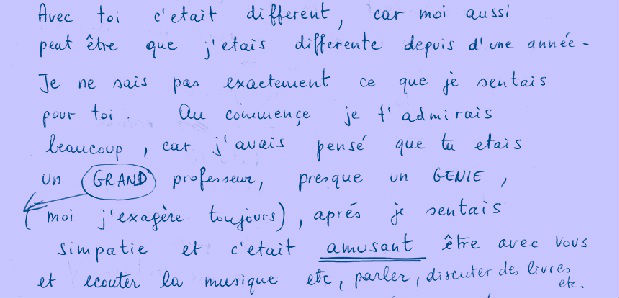 Avec toi c'etait different, car moi aussi
peut être que j'etais differente depuis d'une année-
Je ne sais pas exactement ce que je sentais
pour toi. Au commençe je t'admirais
beaucoup, car j'avais pensé que tu etais
un GRAND professeur, presque un GENIE,
(moi j'exagère toujours), aprés je sentais
simpatie et c'etait amusant être avec vous
et ecouter la musique etc, parler, discuter des livres
etc.